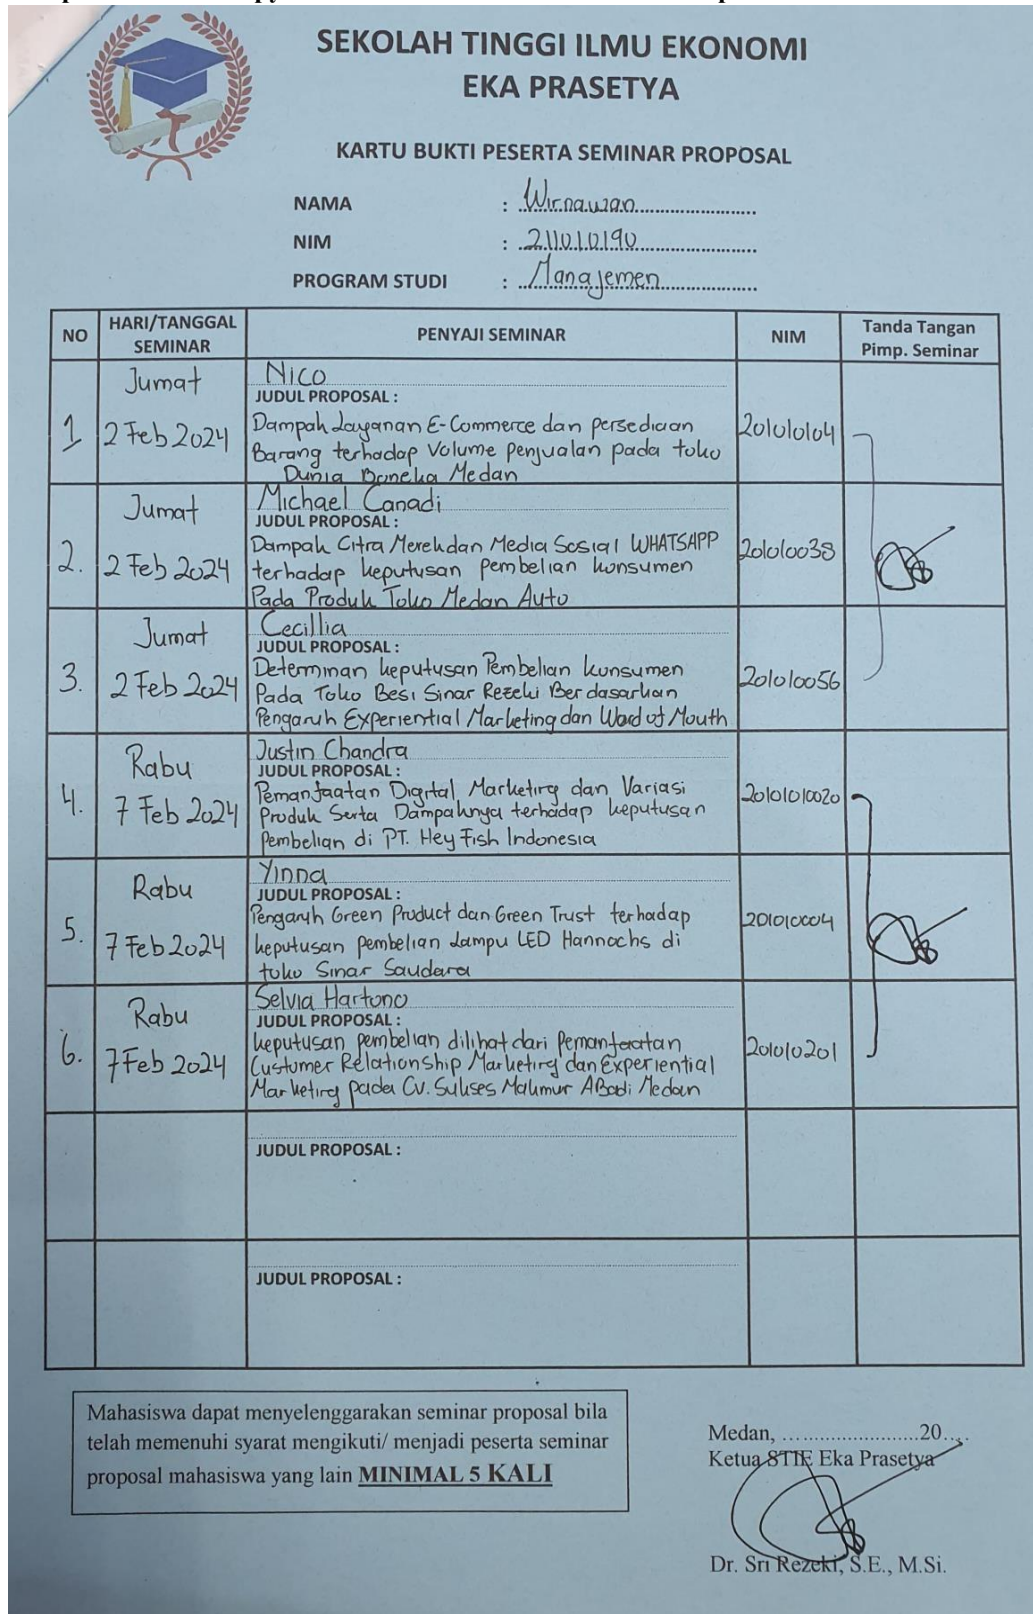 SEKOLAH TINGGI ILMU EKONOMI
EKA PRASETYA
KARTU BUKTI PESERTA SEMINAR PROPOSAL
NAMA : Wirnawan
NIM : 211010190
PROGRAM STUDI : Manajemen
NO HARI/TANGGAL SEMINAR PENYAJI SEMINAR NIM Tanda Tangan Pimp. Seminar
Jumat Nico
JUDUL PROPOSAL :
1 2 Feb 2024 Dampak Layanan E-Commerce dan persediaan 201010104
Barang terhadap Volume penjualan pada toko
Dunia Boneka Medan
Jumat Michael Canadi
JUDUL PROPOSAL :
2. 2 Feb 2024 Dampak Citra Merek dan Media Sosial WHATSAPP 201010038
terhadap keputusan pembelian konsumen
Pada Produk Toko Medan Auto
Jumat Cecillia
JUDUL PROPOSAL :
3. 2 Feb 2024 Determinan keputusan Pembelian konsumen 201010056
Pada Toko Besi Sinar Rezeki Berdasarkan
Pengaruh Experiential Marketing dan Word of Mouth
Rabu Justin Chandra
JUDUL PROPOSAL :
4. 7 Feb 2024 Pemanfaatan Digital Marketing dan Variasi 20101010020
Produk Serta Dampaknya terhadap keputusan
Pembelian di PT. Hey Fish Indonesia
Rabu Yinna
JUDUL PROPOSAL :
5. 7 Feb 2024 Pengaruh Green Product dan Green Trust terhadap 201010004
keputusan pembelian Lampu LED Hannochs di
toko Sinar Saudara
Rabu Selvia Hartono
JUDUL PROPOSAL :
6. 7 Feb 2024 keputusan pembelian dilihat dari Pemanfaatan 201010201
Customer Relationship Marketing dan Experiential
Marketing pada Cv. Sukses Makmur ABadi Medan
JUDUL PROPOSAL :
JUDUL PROPOSAL :
Mahasiswa dapat menyelenggarakan seminar proposal bila
telah memenuhi syarat mengikuti/ menjadi peserta seminar
proposal mahasiswa yang lain MINIMAL 5 KALI
Medan, ........................20....
Ketua STIE Eka Prasetya
Dr. Sri Rezeki, S.E., M.Si.